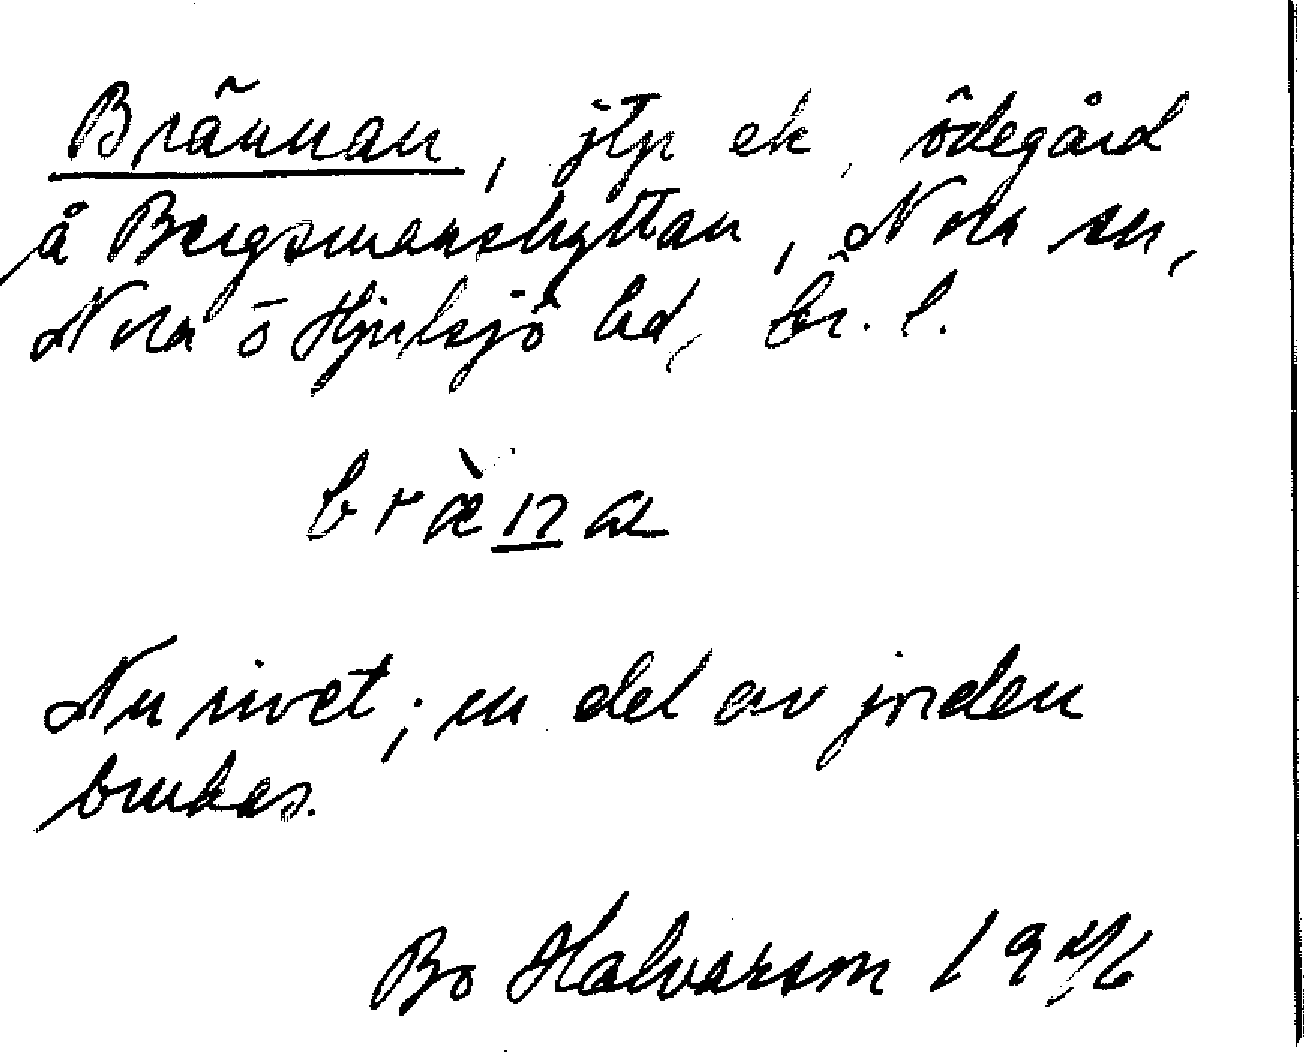 Brännan, jtp ek ödegård
å Bergsmanshyttan, Nora sn,
Nora o Hjulsjö bd, Ör. l.
bræ̀na
Nu rivet; en del av jorden
brukas.
Bo Halvarson 19